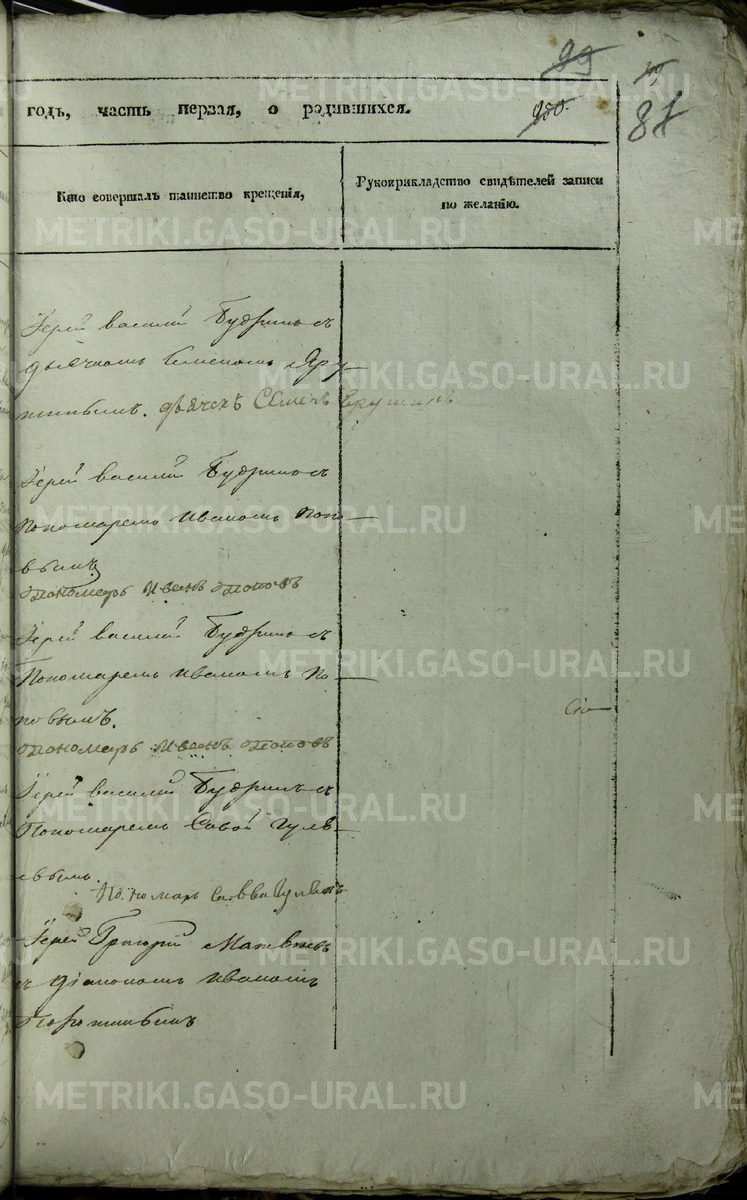 99
99
годъ, часть первая, о родившихся.
250.
87
Кто совершалъ таинство крещенія,
Рукоприкладство свидѣтелей записи
по желанію.
Іерей Василій Будринъ съ
дьячкомъ Семеномъ Яру
шинымъ. дьячекъ Семенъ Ярушинъ
Іерей Василій Будринъ съ
Пономаремъ Иваномъ Попо
вымъ.
Пономарь Иванъ Поповъ
Іерей Василій Будринъ съ
Пономаремъ Иваномъ По
повымъ.
Пономарь Иванъ Поповъ
Іерей Василій Будринъ съ
Пономаремъ Савой Гуля
евымъ.
Пономарь Савва Гуляевъ
Іерей Григорій
съ Діакономъ Иваномъ
METRIKI.GASO-URAL.RU